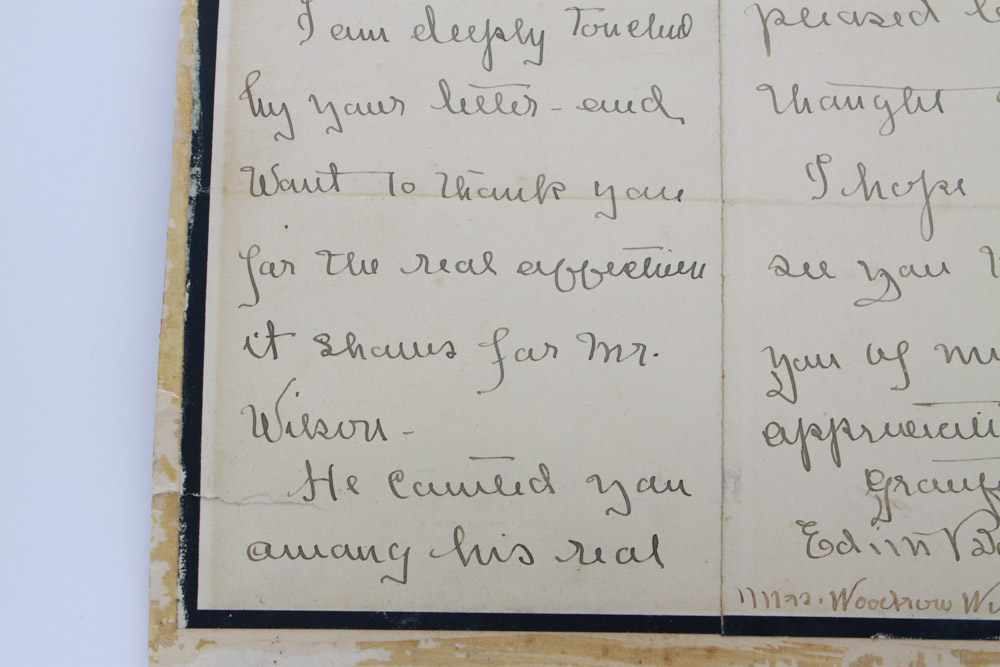 I am deeply touched
by your letter - and
want to thank you
for the real affection
it shows for Mr.
Wilson -
He counted you
among his real
pleased
thought
I hope
see you
you of
Edith
Mrs. Woodrow